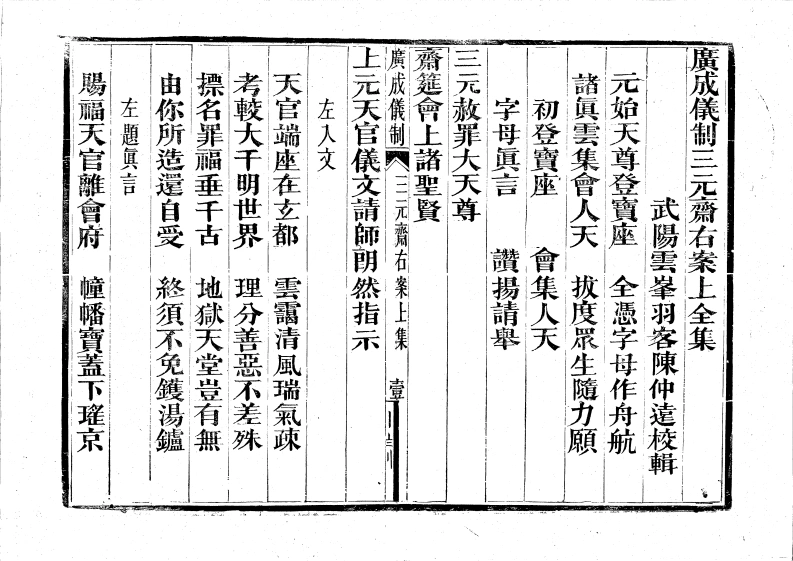 廣成儀制三元齋右案上全集
武陽雲峯羽客陳仲遠校輯
元始天尊登寶座　全憑字母作舟航
諸眞雲集會人天　拔度眾生隨力願
初登寶座　會集人天
字母眞言　讚揚請舉
三元赦罪大天尊
齋筵會上諸聖賢
廣成儀制　三元齋右案上集　壹
上元天官儀文請師朗然指示
左入文
天官端座在玄都　雲靄清風瑞氣疎
考較大千明世界　理分善惡不差殊
摽名罪福垂千古　地獄天堂豈有無
由你所造還自受　終須不免鑊湯鑪
左題眞言
賜福天官離會府　幢幡寶蓋下瑤京